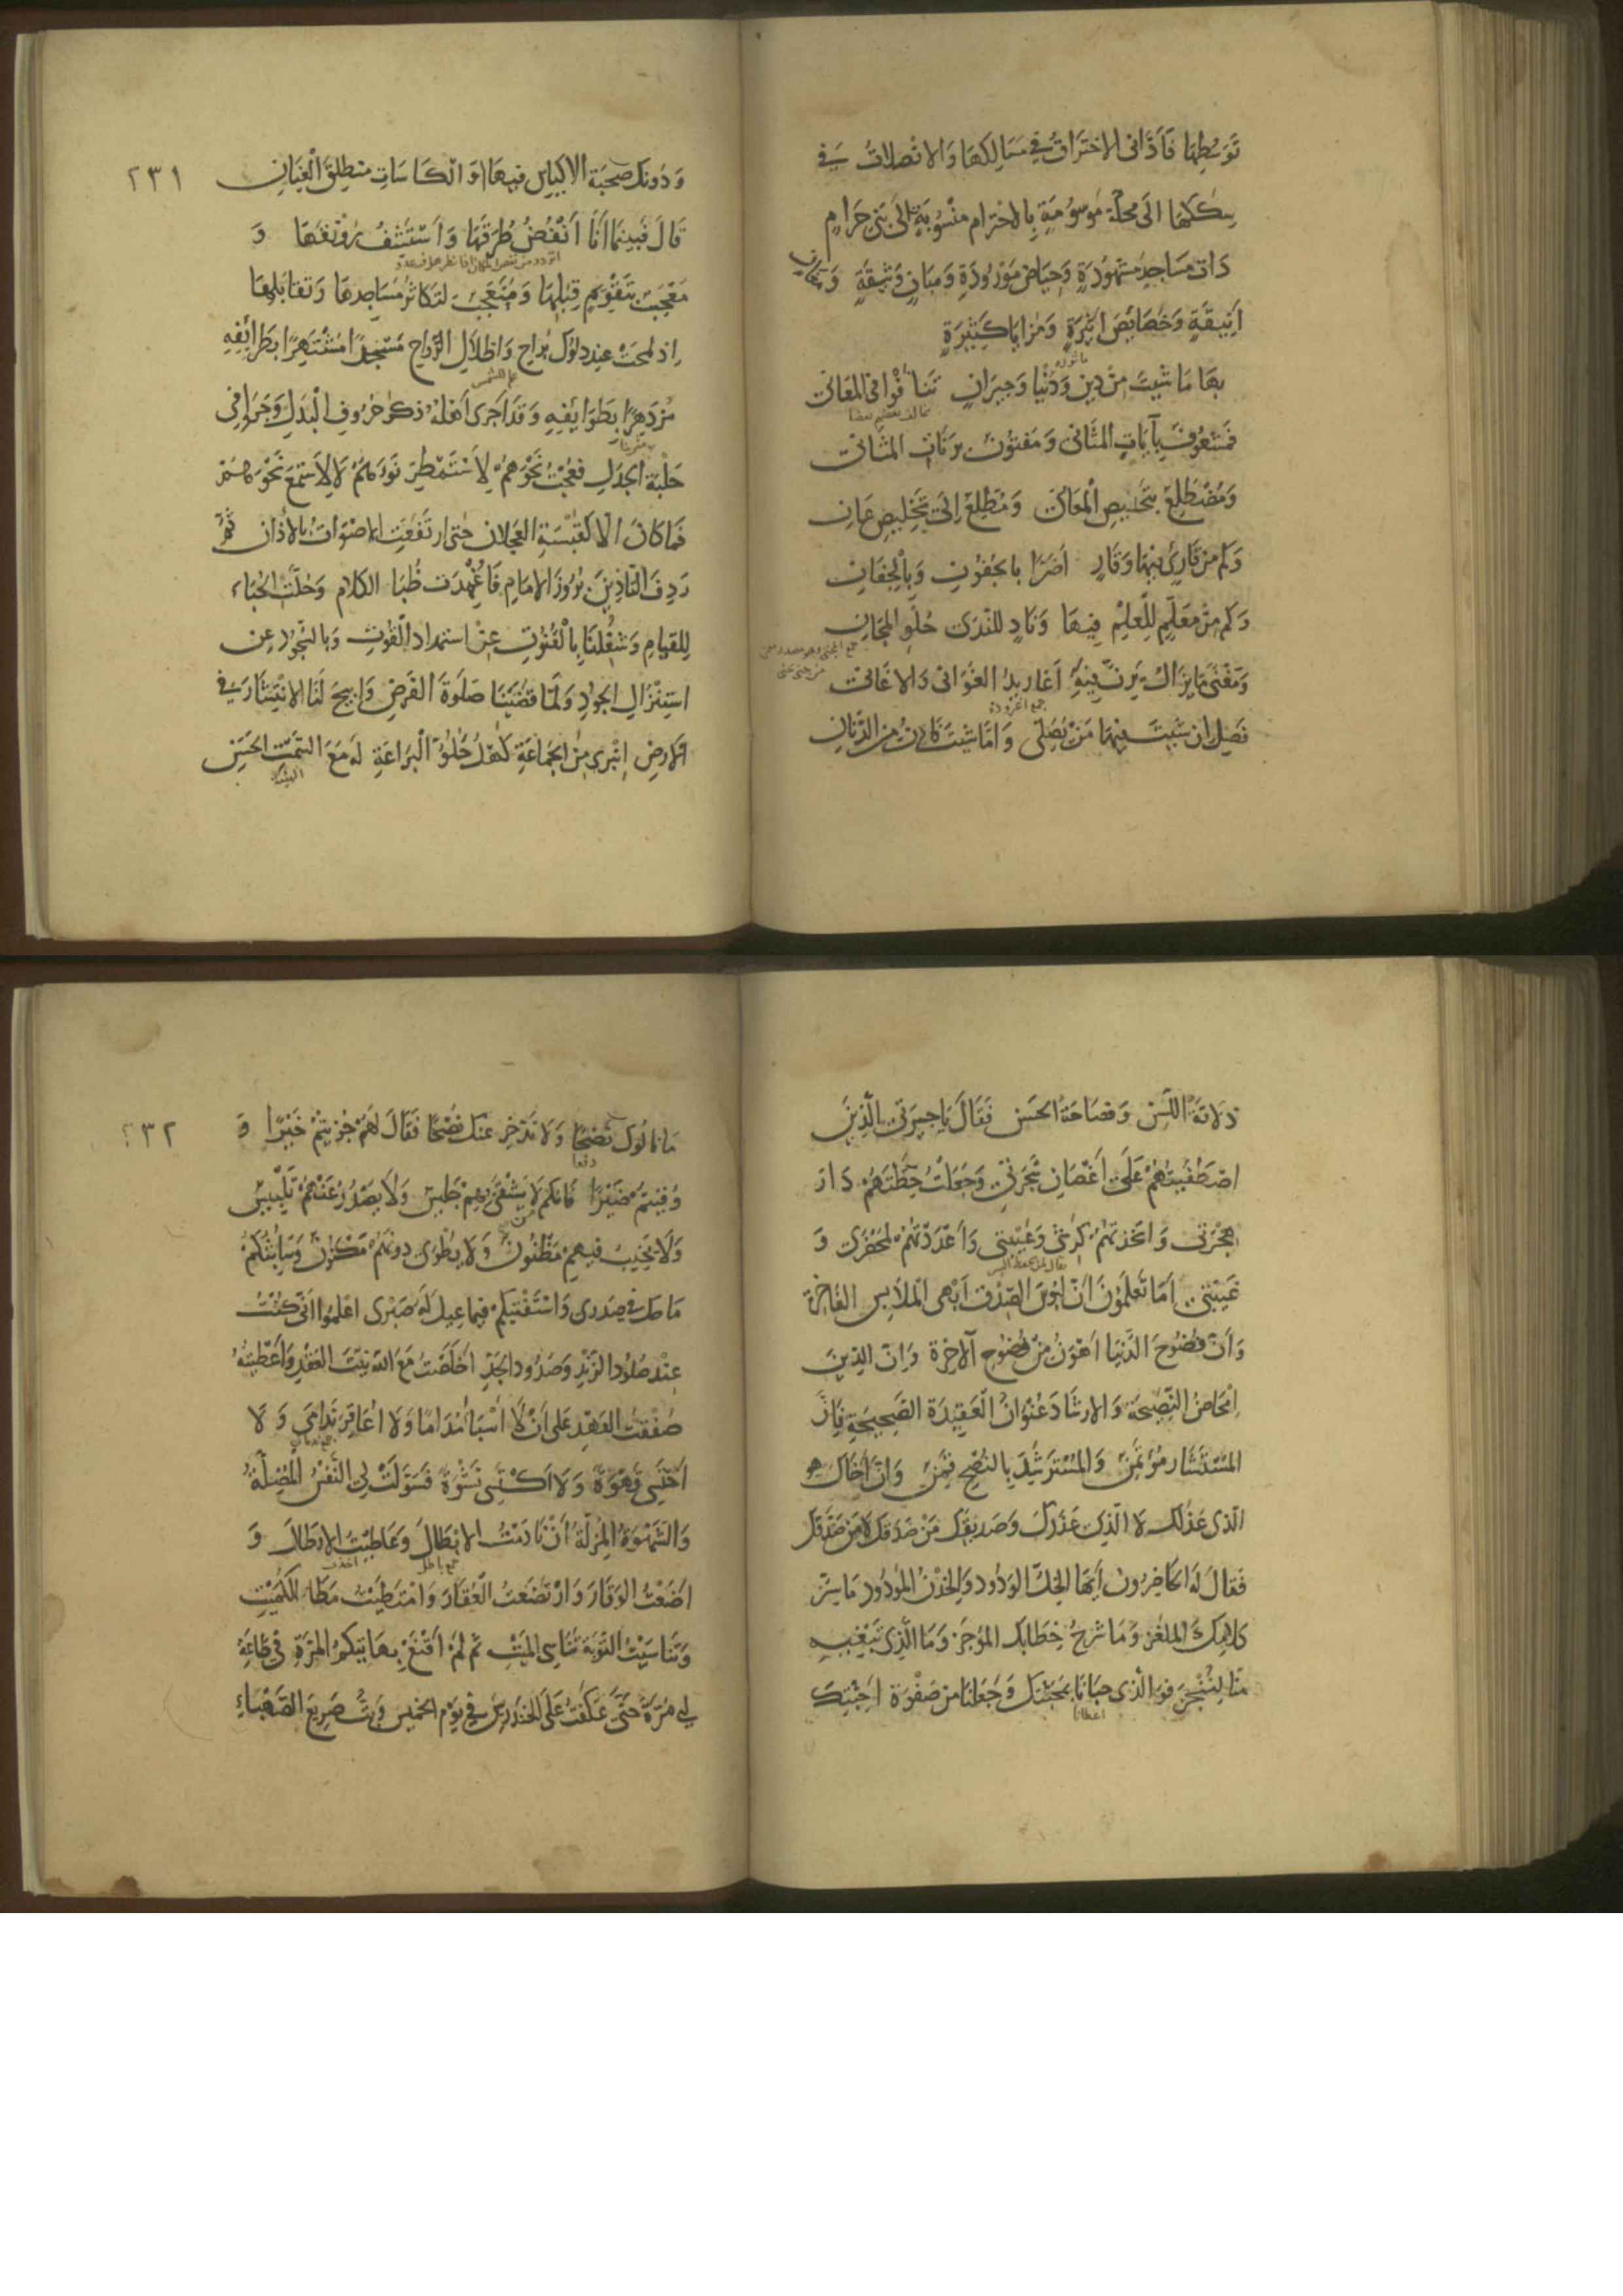 تَوَسُّطِهَا فَاَدَّانِى الاِخْتِرَاقُ فِى مَسَالِكِهَا وَالاِنْصِلَاتُ فِى
سِكَكِهَا اِلَى مَحَلَّةٍ مَوْسُومَةٍ بِالاِحْتِرَامِ مَنْسُوبَةٍ اِلَى بَنِى حَرَامٍ
ذَاتِ مَسَاجِدَ مَشْهُودَةٍ وَحِيَاضٍ مَوْرُودَةٍ وَمَبَانٍ وَثِيقَةٍ وَمَغَانٍ
اَنِيقَةٍ وَخَصَائِصَ اَثِيرَةٍ وَمَزَايَا كَثِيرَةٍ
بِهَا مَا شِيتَ مِنْ دِينٍ وَدُنْيَا وَجِيرَانٍ تَنَافَوْا فِى المَعَانِى
فَمَشْغُوفٌ بِآيَاتِ المَثَانِى وَمَفْتُونٌ بِرَنَّاتِ المَثَانِى
وَمُضْطَلِعٌ بِتَلْخِيصِ الْمَعَانِى وَمُطَّلِعٌ اِلَى تَخْلِيصِ عَانِ
وَكَمْ مِنْ قَارِئٍ فِيهَا وَقَارٍ اَضَرَّا بِالجُفُونِ وَبِالْجِفَانِ
وَكَمْ مِنْ مَعْلَمٍ لِلْعِلْمِ فِيهَا وَنَادٍ لِلنَّدَى حُلْوِ المَجَانِى
وَمَغْنًى مَا يَزَالُ يَرِنُّ فِيهِ اَغَارِيدُ الغَوَانِى وَالاَغَانِى
جمع اغرودة
فَصِلْ اِنْ شِيتَ فِيهَا مَنْ يُصَلِّى وَاِمَّا شِيتَ فَادْنُ مِنَ الدِّنَانِ
٢٣١
وَدُونَكَ صُحْبَةَ الاَكْيَاسِ فِيهَا اَوِ الْكَاسَاتِ مُنْطَلِقَ الْعِنَانِ
قَالَ فَبَيْنَمَا اَنَا اَنْفُضُ طُرُقَهَا وَاَسْتَشِفُّ رَوْنَقَهَا وَ
مُعْجَبٌ بِتَقْوِيمِ قِبْلِهَا وَمُتَعَجِّبٌ لِتَكَاثُرِ مَسَاجِدِهَا وَتَقَابُلِهَا
اِذْ لَمَحْتُ عِنْدَ دُلُوكِ بَرَاحِ وَاِظْلَالِ الرَّوَاحِ مَسْجِدًا مُشْتَهِرًا بِطَرَائِفِهِ
علم للشمس
مُزْدَهِرًا بِطَوَايِفِهِ وَقَدْ اَجْرَى اَهْلُهُ ذِكْرَ حُرُوفِ الْبَدَلِ وَجَرَوْا فِى
حَلْبَةِ الجَدَلِ فَعُجْتُ نَحْوَهُمْ لِاَسْتَمْطِرَ نَوْءَهُمْ لَا لِاَسْتَمِعَ نَحْوَهُمْ
فَمَا كَانَ اِلَّا كَقَبْسَةِ العَجْلَانِ حَتَّى ارْتَفَعَتِ الاَصْوَاتُ بِالاَذَانِ ثُمَّ
رَدِفَ التَّاذِينَ بُرُوزُ الاِمَامِ فَاُغْمِدَتْ ظُبَا الكَلَامِ وَحُلَّتِ الحُبَاءُ
لِلْقِيَامِ وَشُغِلْنَا بِالْقُنُوتِ عَنْ اسْتِمْدَادِ القُوتِ وَبِالسُّجُودِ عَنِ
اسْتِنْزَالِ الجُودِ وَلَمَّا قَضَيْنَا صَلَوةَ الفَرْضِ وَاُبِيحَ لَنَا الاِنْتِشَارُ فِى
الاَرْضِ اِنْبَرَى مِنَ الجَمَاعَةِ كَهْلٌ حُلْوُ الْبَرَاعَةِ لَهُ مَعَ السَّمْتِ الحَسَنِ
ذَلَاقَةُ اللَّسَنِ وَفَصَاحَةُ الحَسَنِ فَقَالَ يَا جِيرَتِى الَّذِينَ
اصْطَفَيْتُهُمْ عَلَى اَغْصَانِ شَجَرَتِى وَجَعَلْتُ خِطَّتَهُمْ دَارَ
هِجْرَتِى وَاتَّخَذْتُهُمْ كَرِشِى وَعَيْبَتِى وَاَعْدَدْتُهُمْ لِمَحْضَرِى وَ
غَيْبَتِى اَمَا تَعْلَمُونَ اَنَّ لَبُوسَ الصِّدْقِ اَبْهَى الْمَلَابِسِ الفَاخِرَةِ
وَاَنَّ فُضُوحَ الدُّنْيَا اَهْوَنُ مِنْ فُضُوحِ الآخِرَةِ وَاِنَّ الدِّينَ
اِمْحَاضُ النَّصِيحَةِ وَالاِرْشَادَ عُنْوَانُ الْعَقِيدَةِ الصَّحِيحَةِ فَاِنَّ
المُسْتَشَارَ مُؤْتَمَنٌ وَالمُسْتَرْشِدَ بِالنُّصْحِ قَمِنٌ وَاِنَّ اَخَاكَ هُوَ
الَّذِى عَذَلَكَ لَا الَّذِى عَذَرَكَ وَصَدِيقَكَ مَنْ صَدَقَكَ لَا مَنْ صَدَّقَكَ
فَقَالَ لَهُ الحَاضِرُونَ اَيُّهَا الخِلُّ الوَدُودُ وَالخِدْنُ المَوْدُودُ مَا سِرُّ
كَلَامِكَ المُلْغَزِ وَمَا شَرْحُ خِطَابِكَ المُوجَزِ وَمَا الَّذِى تَبْغِيهِ
مِنَّا لِيُنْجَزَ فَوَالَّذِى حَبَانَا بِمَحَبَّتِكَ وَجَعَلَنَا مِنْ صَفْوَةِ اَحِبَّتِكَ
اعطانا
٢٣٢
مَا نَالُوكَ نُصْحًا وَلَا نَدَّخِرُ عَنْكَ نَضْحًا فَقَالَ لَهُمْ جُزِيتُمْ خَيْرًا وَ
دفعا
وُقِيتُمْ ضَيْرًا فَاِنَّكُمْ لَا يَشْقَى بِهِمْ جَلِيسٌ وَلَا يَصْدُرُ عَنْهُمْ تَلْبِيسٌ
وَلَا يَخِيبُ فِيهِمْ مَظْنُونٌ وَلَا يُطْوَى دُونَهُمْ مَكْنُونٌ وَسَاَبُثُّكُمْ
مَا حَكَّ فِى صَدْرِى وَاَسْتَفْتِيكُمْ فِيمَا عِيلَ لَهُ صَبْرِى اعْلَمُوا اَنِّى كُنْتُ
عِنْدَ صُلُودِ الزَّنْدِ وَصُدُودِ الجَدِّ اَخْلَصْتُ مَعَ اللهِ نِيَّةَ العَقْدِ وَاَعْطَيْتُهُ
صَفْقَةَ العَهْدِ عَلَى اَنْ لَا اَسْبَا مُدَامًا وَلَا اُعَاقِرَ نَدَامَى وَلَا
اَحْتَسِىَ قَهْوَةً وَلَا اَكْتَسِىَ نَشْوَةً فَسَوَّلَتْ لِىَ النَّفْسُ المُضِلَّةُ
وَالشَّهْوَةُ المُزِلَّةُ اَنْ نَادَمْتُ الاَبْطَالَ وَعَاطَيْتُ الاَرْطَالَ وَ
اَضَعْتُ الوَقَارَ وَارْتَضَعْتُ الْعُقَارَ وَامْتَطَيْتُ مَطَا الكُمَيْتِ
وَتَنَاسَيْتُ التَّوْبَةَ تَنَاسِىَ المَيْتِ ثُمَّ لَمْ اَقْنَعْ بِهَاتِيكُمُ المَرَّةِ فِى طَاعَةِ
اَبِى مُرَّةَ حَتَّى عَكَفْتُ عَلَى الخَنْدَرِيسِ فِى يَوْمِ الخَمِيسِ وَبِتُّ صَرِيعَ الصَّهْبَاءِ